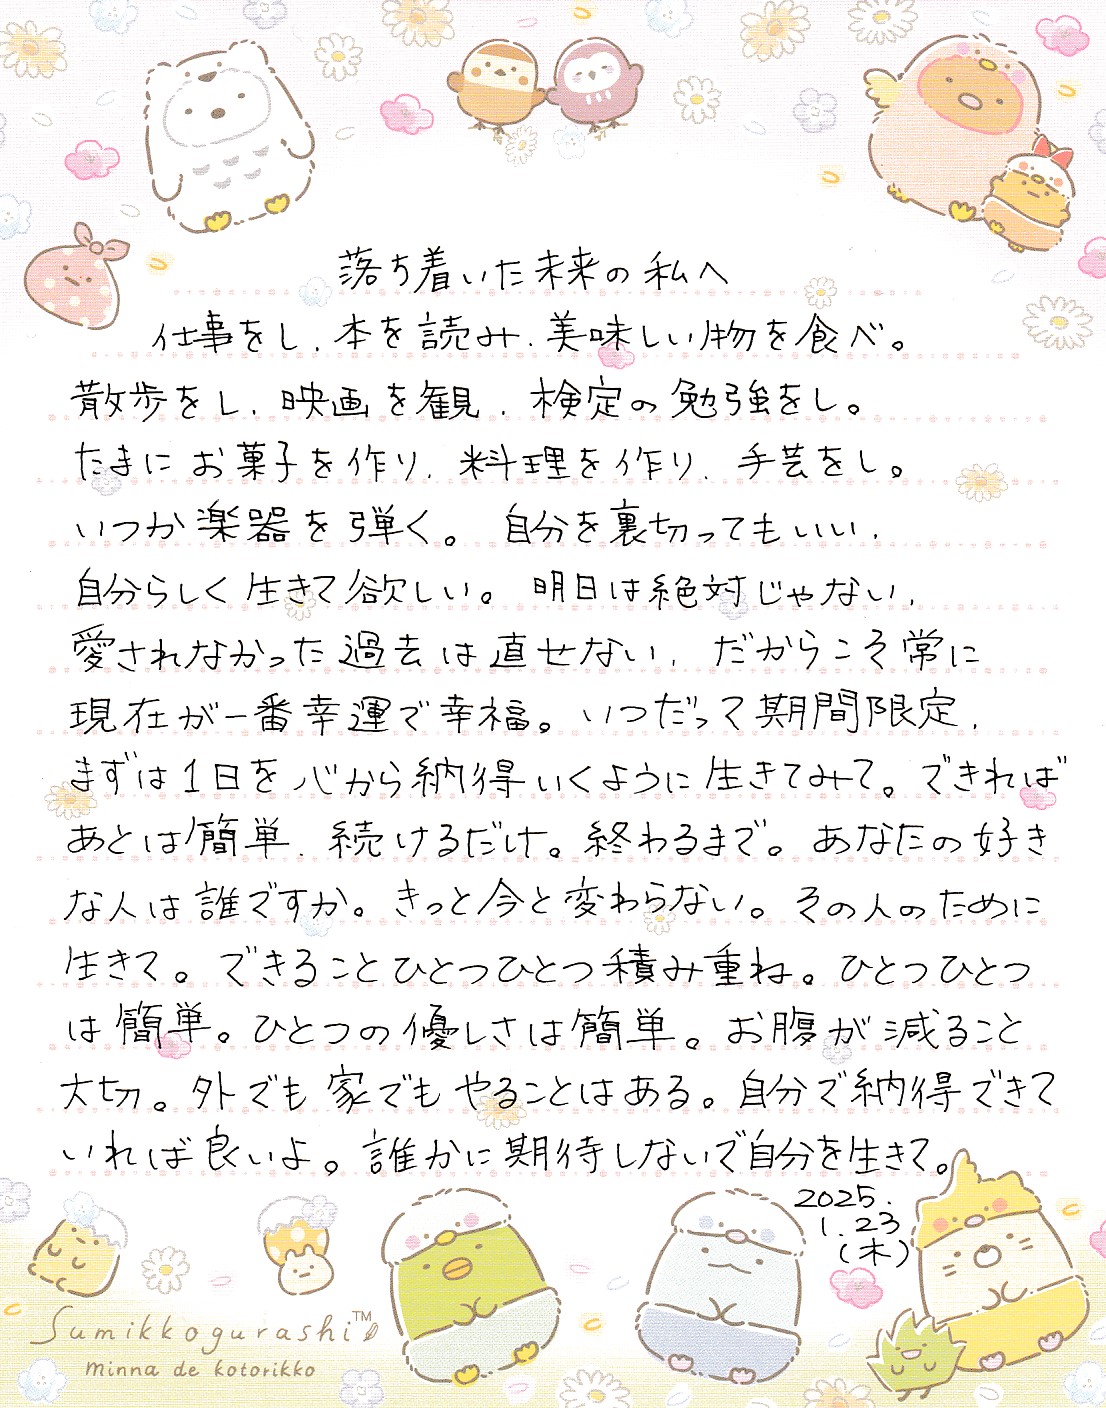 落ち着いた未来の私へ
仕事をし、本を読み、美味しい物を食べ。
散歩をし、映画を観、検定の勉強をし。
たまにお菓子を作り、料理を作り、手芸をし。
いつか楽器を弾く。自分を裏切ってもいい、
自分らしく生きて欲しい。明日は絶対じゃない、
愛されなかった過去は直せない、だからこそ常に
現在が一番幸運で幸福。いつだって期間限定、
まずは1日を心から納得いくように生きてみて。できれば
あとは簡単、続けるだけ。終わるまで。あなたの好き
な人は誰ですか。きっと今と変わらない。その人のために
生きて。できることひとつひとつ積み重ね。ひとつひとつ
は簡単。ひとつの優しさは簡単。お腹が減ること
大切。外でも家でもやることはある。自分で納得できて
いれば良いよ。誰かに期待しないで自分を生きて。
2025.
1.23
(木)
Sumikkogurashi™
minna de kotorikko